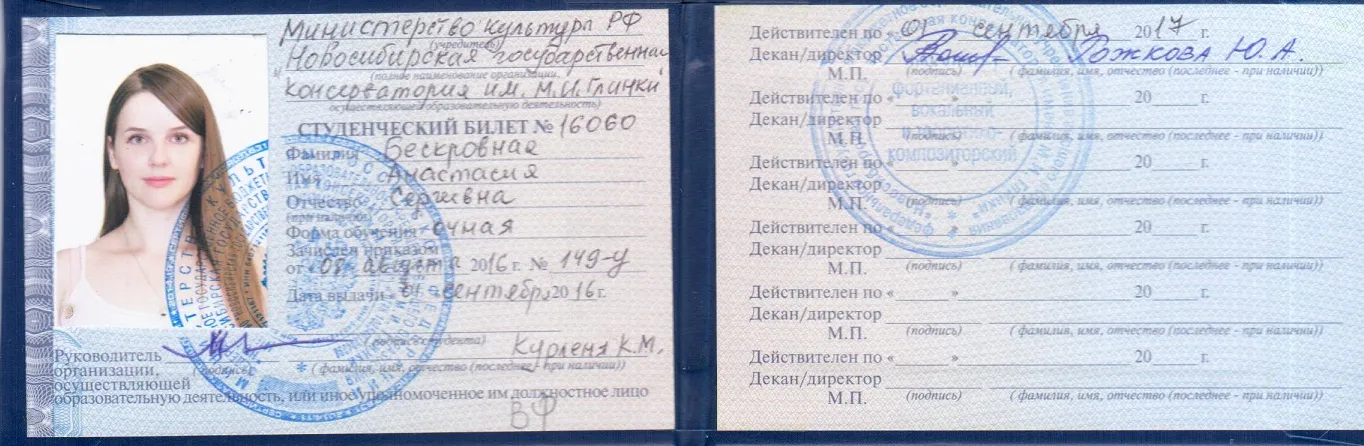 Министерство культуры РФ
(учредитель)
Новосибирская государственная
(полное наименование организации,
консерватория им. М.И. Глинки
осуществляющей образовательную деятельность)
СТУДЕНЧЕСКИЙ БИЛЕТ № 16060
Фамилия Бескровная
Имя Анастасия
Отчество Сергеевна
(при наличии)
Форма обучения очная
Зачислен приказом
от «08» августа 2016 г. № 149-у
Дата выдачи «01» сентября 2016 г.
(подпись студента)
Руководитель Курленя К.М.
организации, (подпись) (фамилия, имя, отчество (последнее - при наличии))
осуществляющей
образовательную деятельность, или иное уполномоченное им должностное лицо
ВФ
Действителен по «01» сентября 2017 г.
Декан/директор Рожкова Ю.А.
М.П. (подпись) (фамилия, имя, отчество (последнее - при наличии))
Действителен по « » 20 г.
Декан/директор
М.П. (подпись) (фамилия, имя, отчество (последнее - при наличии))
Действителен по « » 20 г.
Декан/директор
М.П. (подпись) (фамилия, имя, отчество (последнее - при наличии))
Действителен по « » 20 г.
Декан/директор
М.П. (подпись) (фамилия, имя, отчество (последнее - при наличии))
Действителен по « » 20 г.
Декан/директор
М.П. (подпись) (фамилия, имя, отчество (последнее - при наличии))
Действителен по « » 20 г.
Декан/директор
М.П. (подпись) (фамилия, имя, отчество (последнее - при наличии))
фортепианный,
вокальный
композиторский